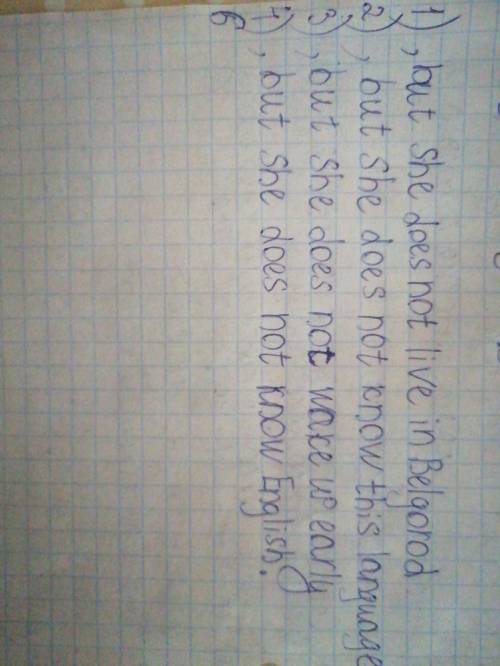 1) , but she does not live in Belgorod.
2) , but she does not know this language
3) , but she does not wake up early
4) , but she does not know English.
6